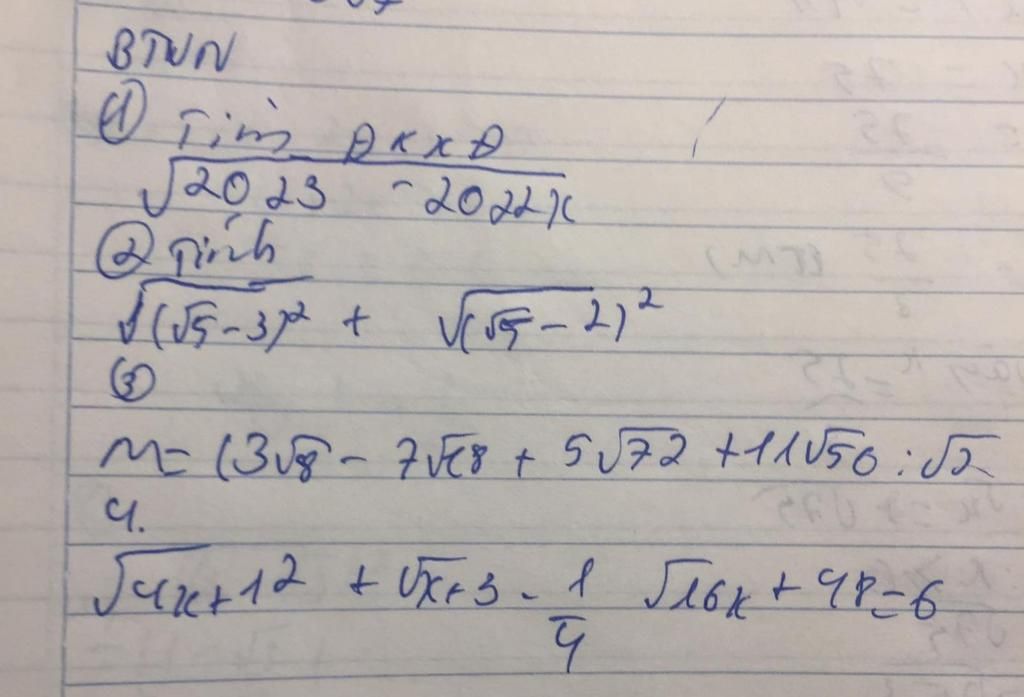 BTVN
① Tìm ĐKXĐ
√2023 - 2022x
② Tính
√(√5 - 3)² + √(√5 - 2)²
③
M = (3√8 - 7√18 + 5√72 + 11√50 : √2
4.
√4x + 12 + √x + 3 - 1/4 √16x + 48 = 6